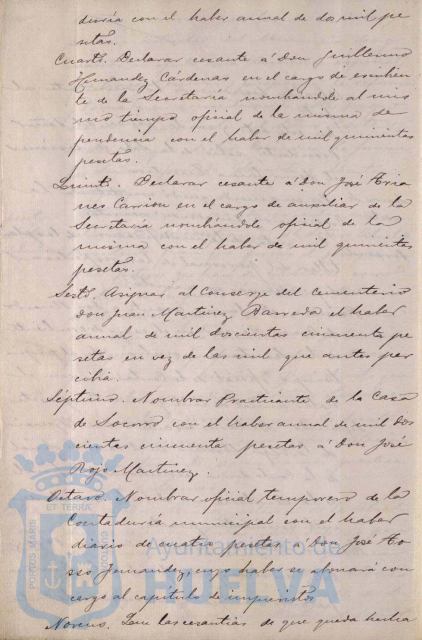 duría con el haber annal de dos mil pe
setas.
Cuarto. Declarar cesante á Don Guillermo
Hernandez Cárdenas en el cargo de escribien
te de la Secretaría nombándole al mis
mo tiempo oficial de la misma de
pendencia con el haber de mil quinientas
pesetas.
Quinto. Declarar cesante á Don José Aria
nes Carrion en el cargo de auxiliar de la
Secretaría nombándole oficial de la
misma con el haber de mil quinientas
pesetas.
Sesto. Asignar al Conserge del Cementerio
Don Juan Martinez Barreda el haber
annal de mil doscientas cincuenta pe
setas en vez de las mil que antes per
cibia.
Séptimo. Nombrar Practicante de la Casa
de Socorro con el haber annal de mil dos
cientas cincuenta pesetas á Don José
Rojo Martinez.
Octavo. Nombrar oficial temporero de la
Contaduría municipal con el haber
diario de cuatro pesetas á Don José
Fernandez, cuyo haber se abonará con
cargo al capitulo de imprevistos
Noveno. las cesantias de que queda hecha
PORTUS MARIS
ET TERRÆ
CUSTODIA
Ayuntamiento de
HUELVA